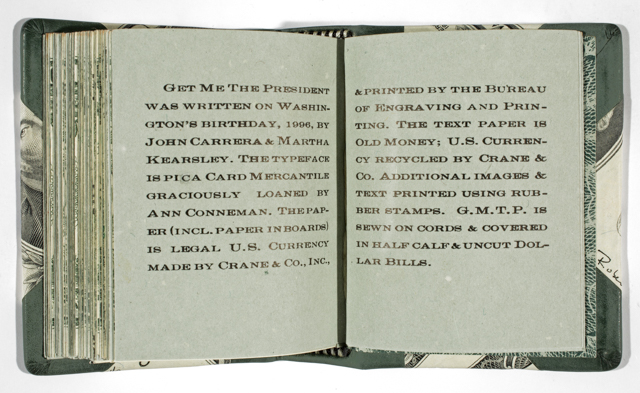 Get Me The President
was written on Washin-
gton's birthday, 1996, by
John Carrera & Martha
Kearsley. The typeface
is pica Card Mercantile
graciously loaned by
Ann Conneman. The pap-
er (incl. paper in boards)
is legal U.S. Currency
made by Crane & Co., Inc.,
& printed by the Bureau
of Engraving and Prin-
ting. The text paper is
Old Money; U.S. Curren-
cy recycled by Crane &
Co. Additional images &
text printed using rub-
ber stamps. G.M.T.P. is
sewn on cords & covered
in half calf & uncut Dol-
lar Bills.